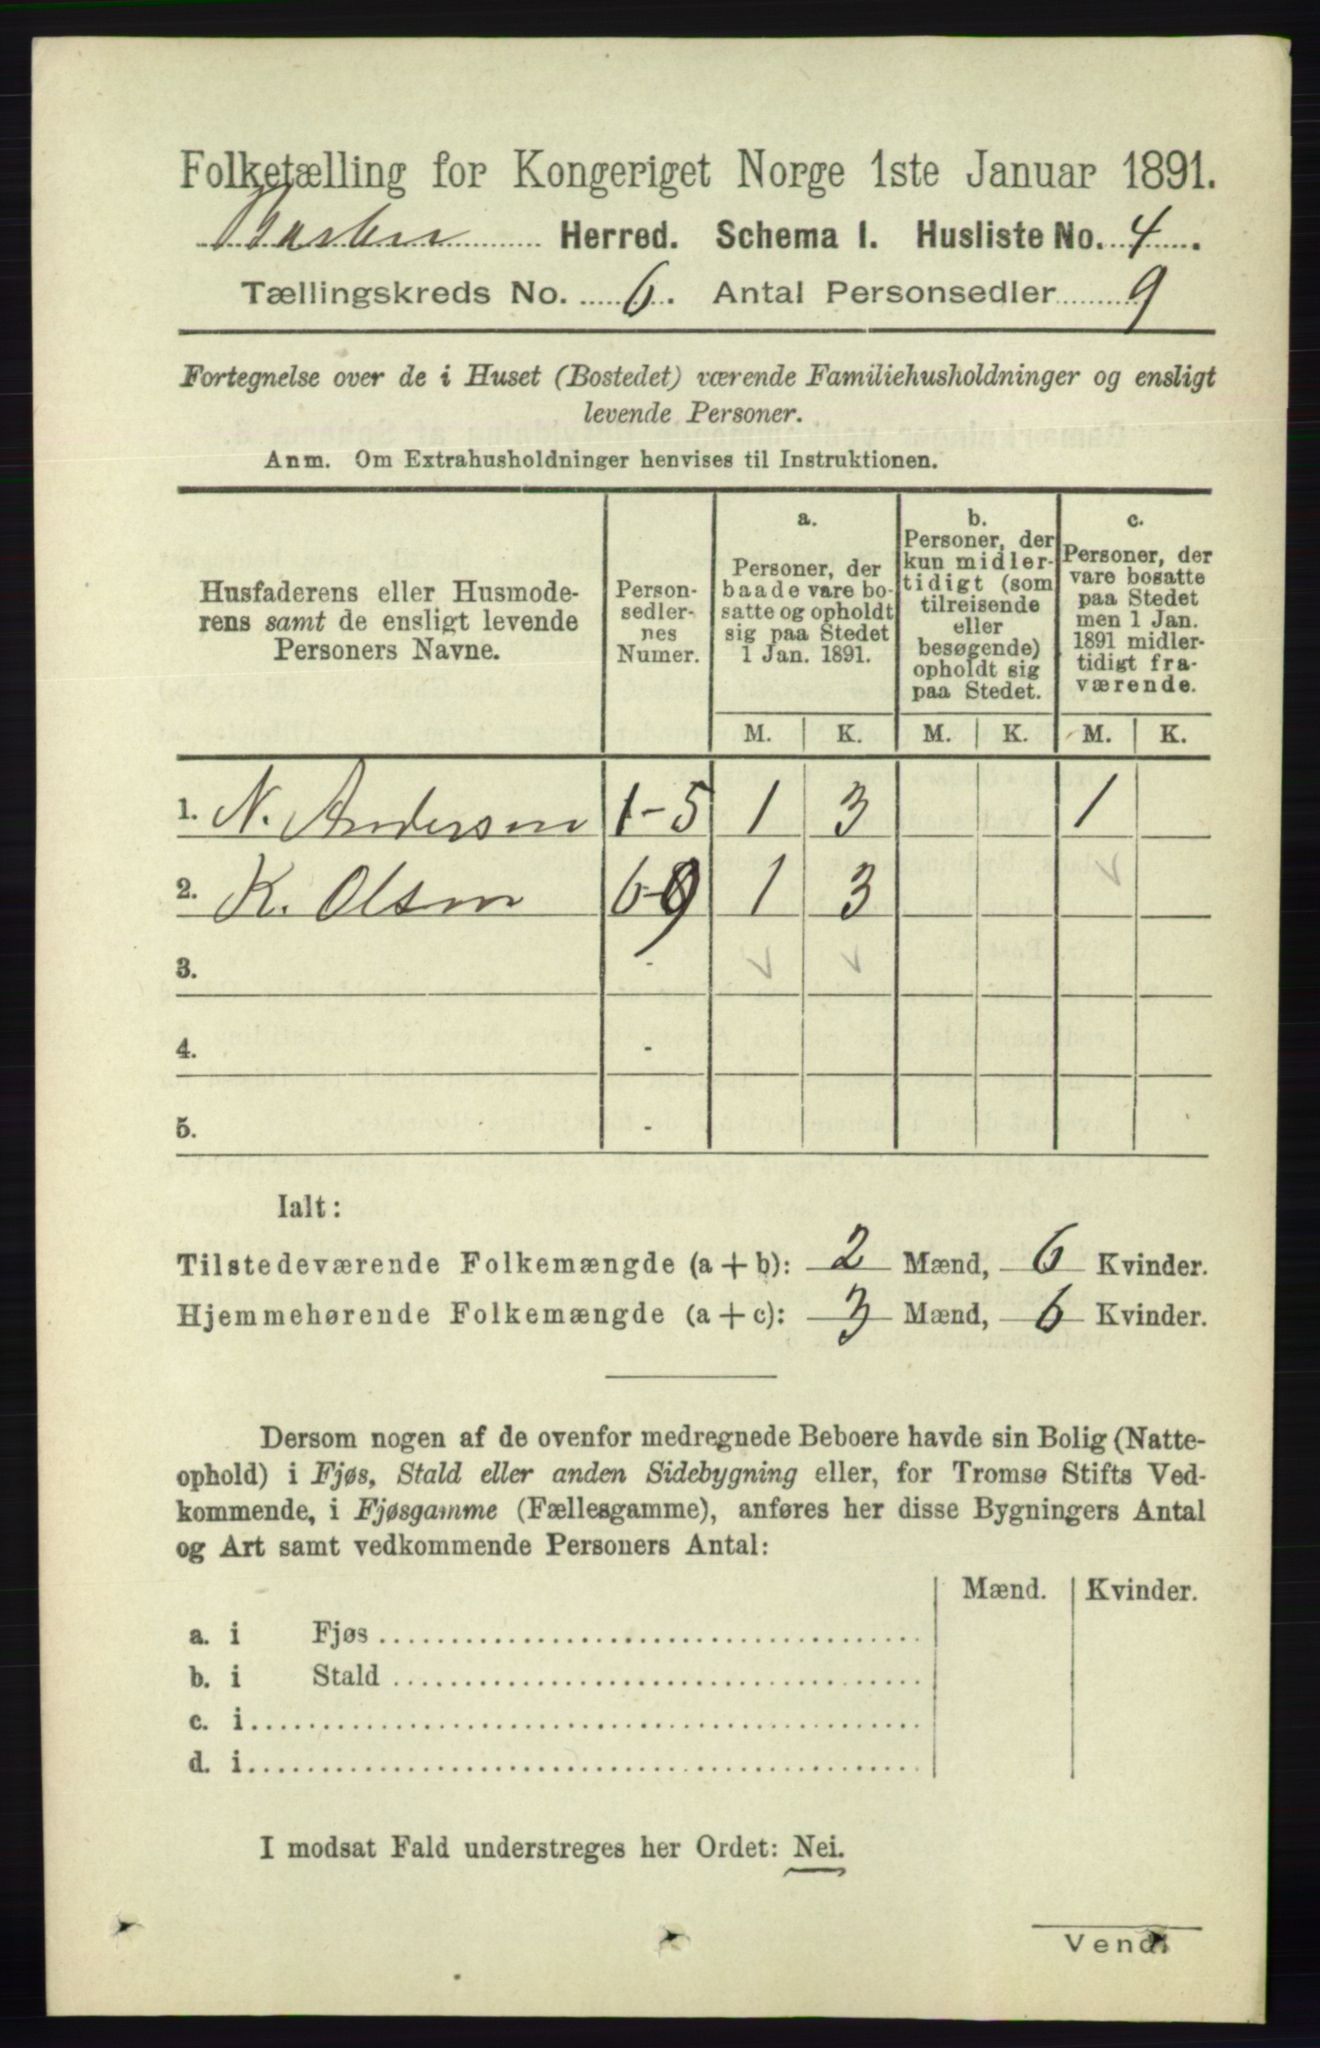 Folketælling for Kongeriget Norge 1ste Januar 1891.
Herred. Schema I. Husliste No. 4.
Tællingskreds No. 6. Antal Personsedler 9
Fortegnelse over de i Huset (Bostedet) værende Familiehusholdninger og ensligt
levende Personer.
Anm. Om Extrahusholdninger henvises til Instruktionen.
Husfaderens eller Husmode-
rens samt de ensligt levende
Personers Navne.
Person-
sedler-
nes
Numer.
a.
Personer, der
baade vare bo-
satte og opholdt
sig paa Stedet
1 Jan. 1891.
b.
Personer, der
kun midler-
tidigt (som
tilreisende
eller
besøgende)
opholdt sig
paa Stedet.
c.
Personer, der
vare bosatte
paa Stedet
men 1 Jan.
1891 midler-
tidigt fra-
værende.
M. K. M. K. M. K.
1. N. Andersen 1-5 1 3 1
2. K. Olsen 6-9 1 3
3. -
4. -
5. -
Ialt:
Tilstedeværende Folkemængde (a + b): 2 Mænd, 6 Kvinder.
Hjemmehørende Folkemængde (a + c): 3 Mænd, 6 Kvinder.
Dersom nogen af de ovenfor medregnede Beboere havde sin Bolig (Natte-
ophold) i Fjøs, Stald eller anden Sidebygning eller, for Tromsø Stifts Ved-
kommende, i Fjøsgamme (Fællesgamme), anføres her disse Bygningers Antal
og Art samt vedkommende Personers Antal:
Mænd. Kvinder.
a. i Fjøs
b. i Stald
c. i
d. i
I modsat Fald understreges her Ordet: Nei.
Vend!